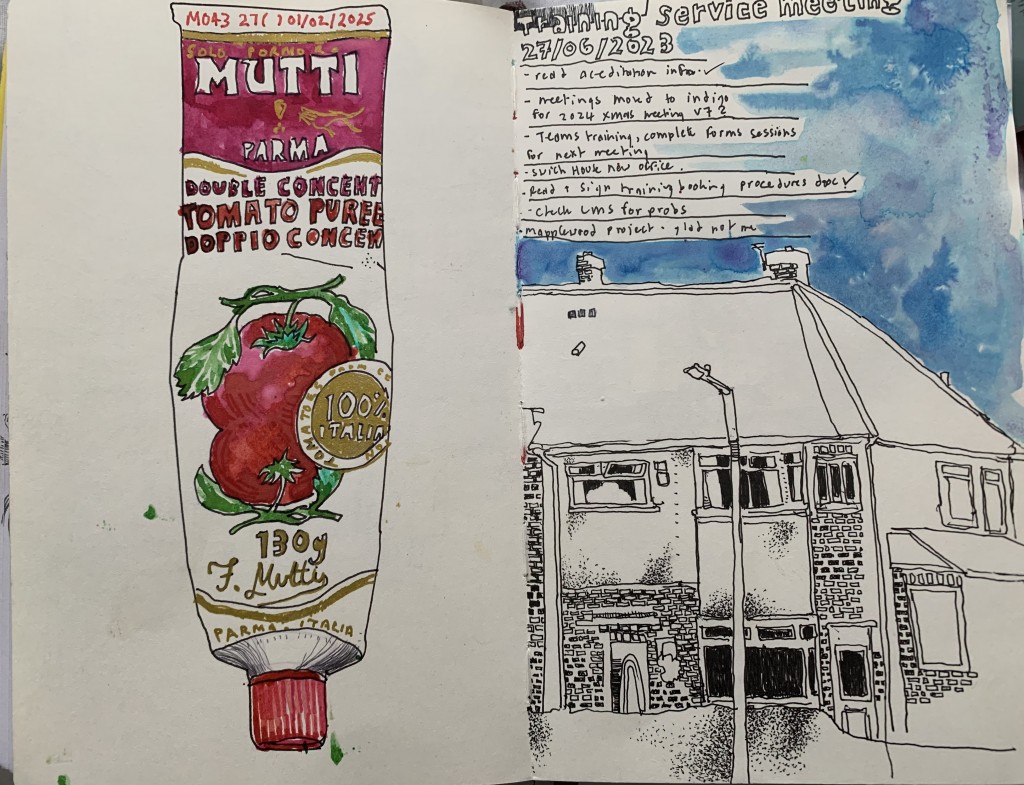 M043 27( ) 01/02/2025
SOLO POMODORO
MUTTI
PARMA
DOUBLE CONCENT
TOMATO PUREE
DOPPIO CONCEN
TOMATOES FROM
100%
ITALIAN
130g
F. Mutti
PARMA - ITALIA
Training Service meeting
27/06/2023
- read acreditation info. ✓
- meetings moved to indigo
for 2024 xmas meeting
- Teams training, complete forms sessions
for next meeting
- House new office.
- Read + sign training booking procedures doc ✓
- check LMS for probs
- mapplewood project - glad not me